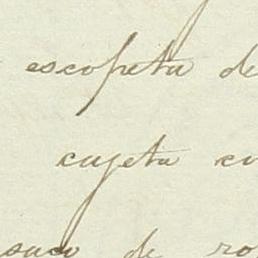 escopeta de
cajeta co
saco de ro